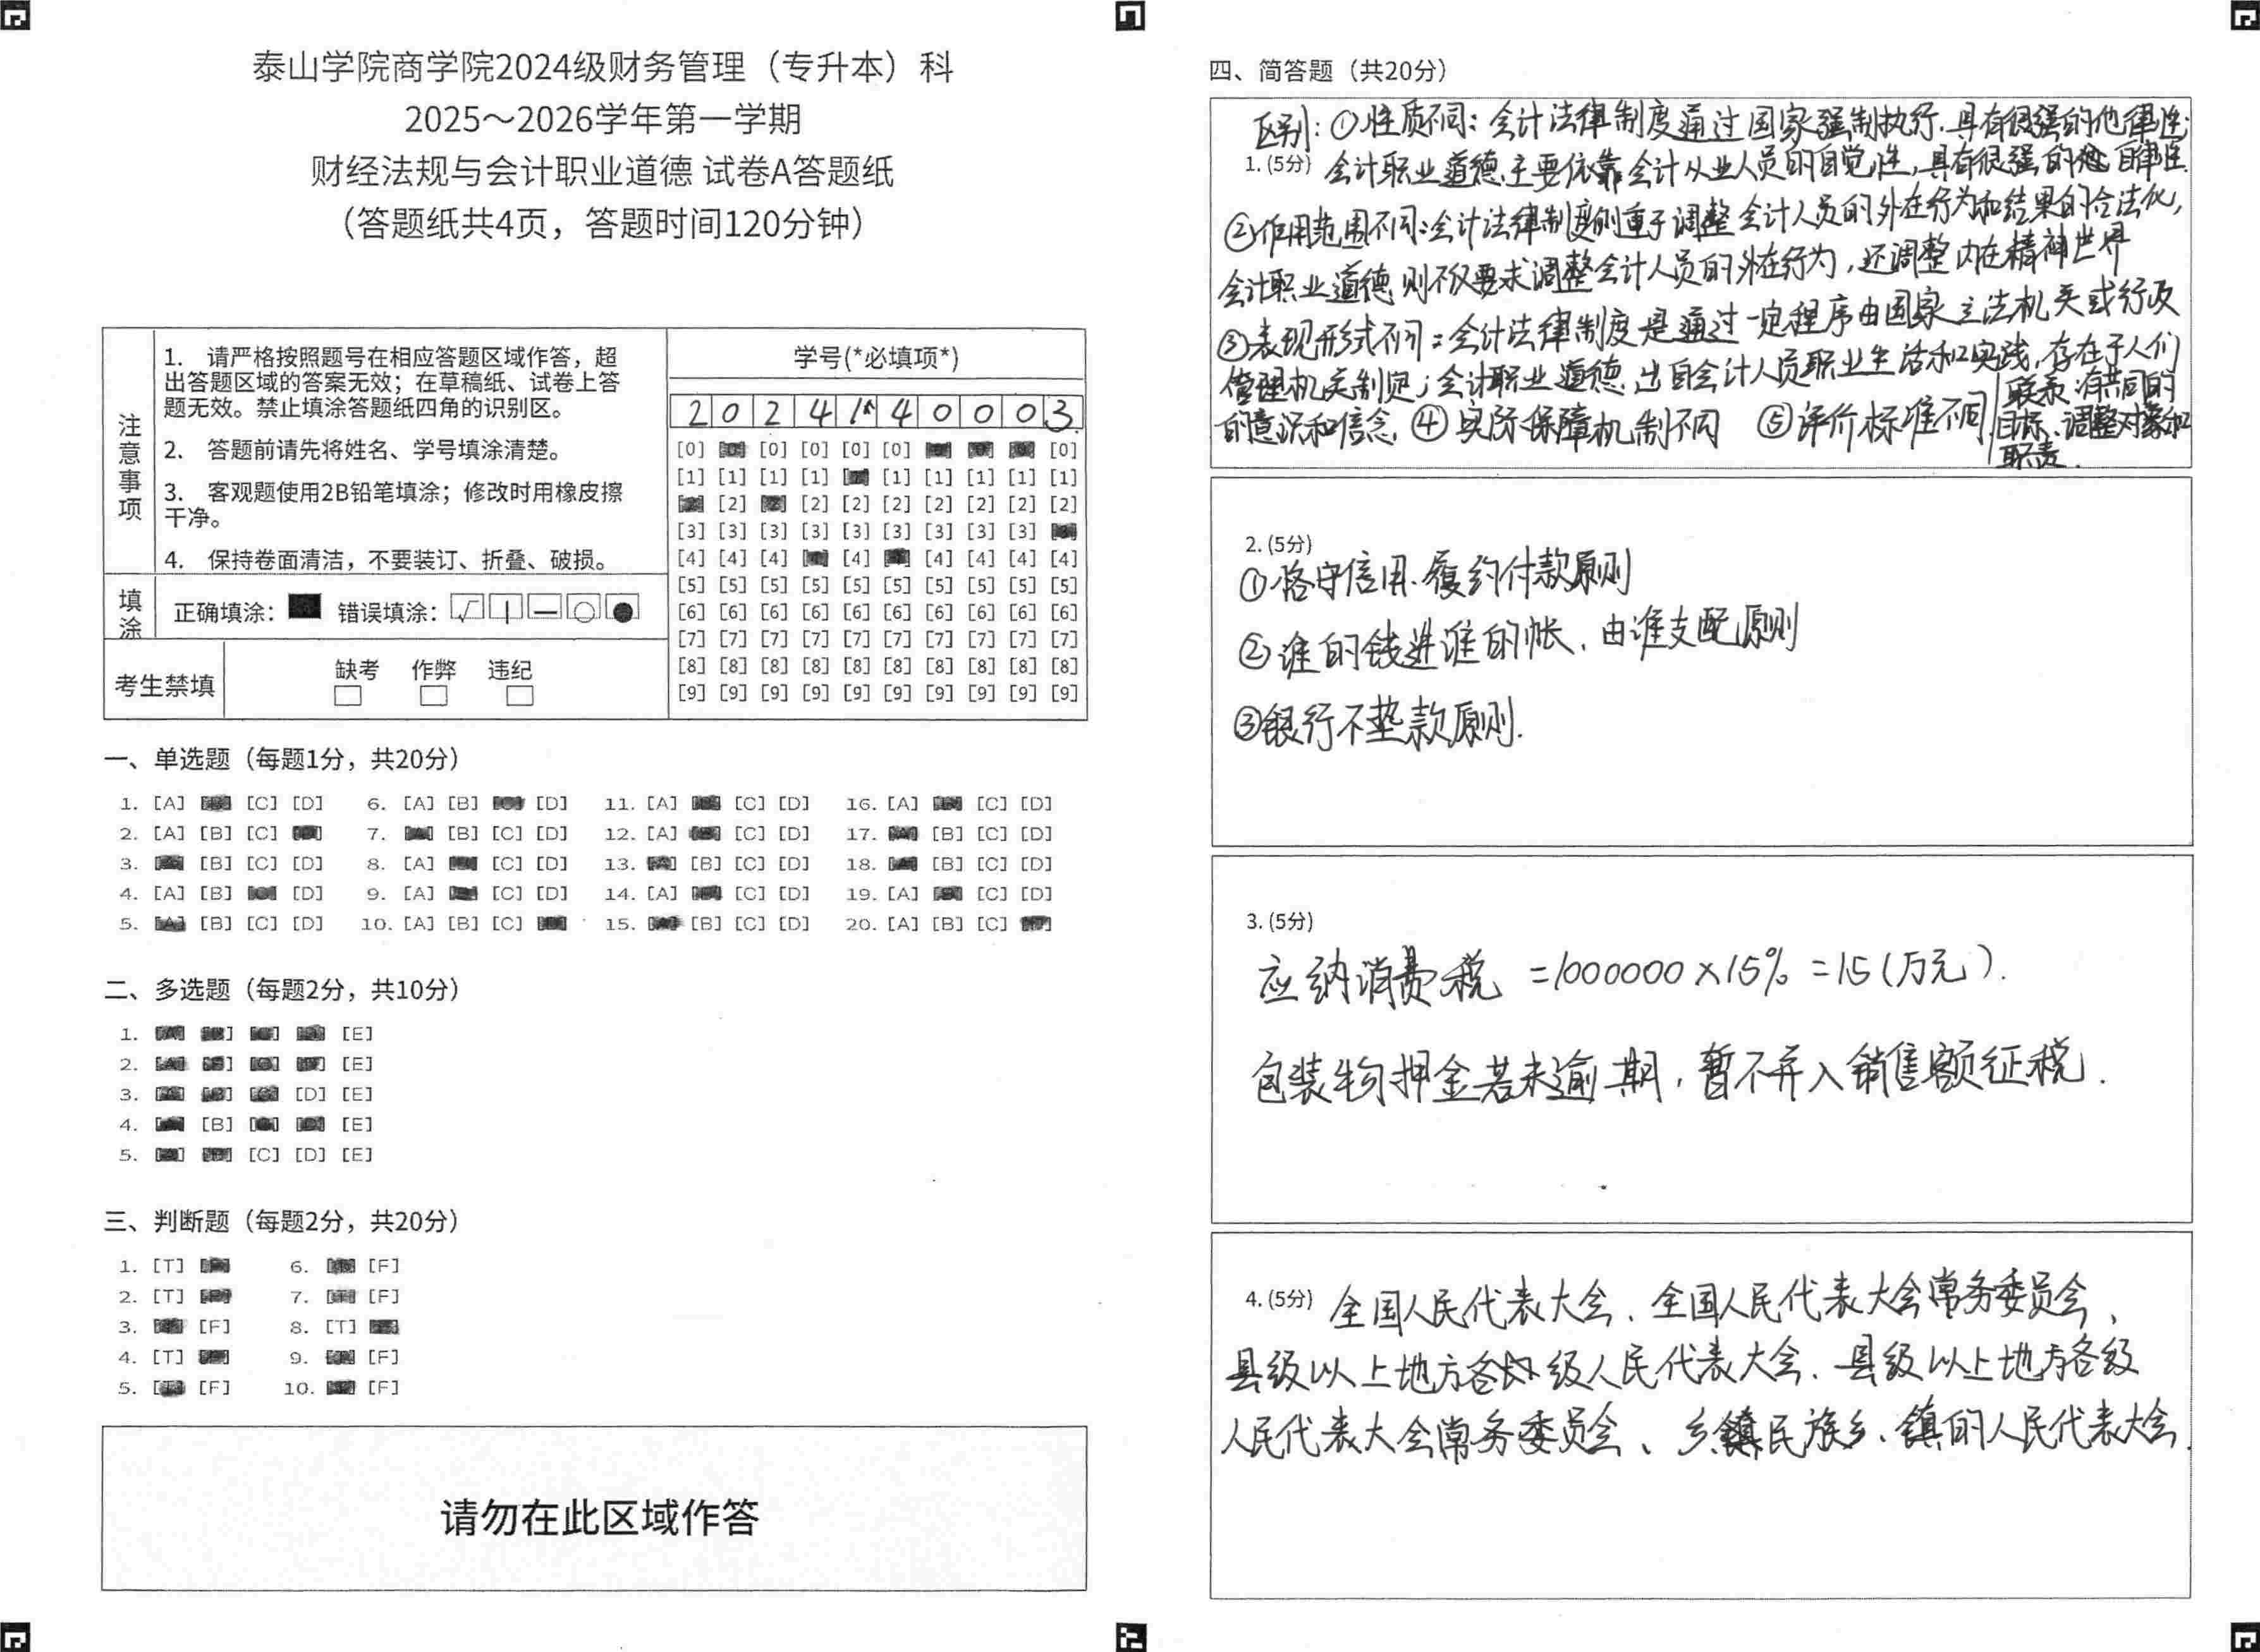 泰山学院商学院2024级财务管理（专升本）科
2025～2026学年第一学期
财经法规与会计职业道德 试卷A答题纸
（答题纸共4页，答题时间120分钟）
注意事项
1. 请严格按照题号在相应答题区域作答，超
出答题区域的答案无效；在草稿纸、试卷上答
题无效。禁止填涂答题纸四角的识别区。
2. 答题前请先将姓名、学号填涂清楚。
3. 客观题使用2B铅笔填涂；修改时用橡皮擦
干净。
4. 保持卷面清洁，不要装订、折叠、破损。
填涂
正确填涂： 错误填涂：
考生禁填
缺考 作弊 违纪
学号(*必填项*)
2 0 2 4 1 4 0 0 0 3
[0] [0] [0] [0] [0] [0]
[1] [1] [1] [1] [1] [1] [1] [1] [1]
[2] [2] [2] [2] [2] [2] [2] [2]
[3] [3] [3] [3] [3] [3] [3] [3] [3]
[4] [4] [4] [4] [4] [4] [4] [4]
[5] [5] [5] [5] [5] [5] [5] [5] [5] [5]
[6] [6] [6] [6] [6] [6] [6] [6] [6] [6]
[7] [7] [7] [7] [7] [7] [7] [7] [7] [7]
[8] [8] [8] [8] [8] [8] [8] [8] [8] [8]
[9] [9] [9] [9] [9] [9] [9] [9] [9] [9]
一、单选题（每题1分，共20分）
1. [A] [C] [D] 6. [A] [B] [D] 11. [A] [C] [D] 16. [A] [C] [D]
2. [A] [B] [C] 7. [B] [C] [D] 12. [A] [C] [D] 17. [B] [C] [D]
3. [B] [C] [D] 8. [A] [C] [D] 13. [B] [C] [D] 18. [B] [C] [D]
4. [A] [B] [D] 9. [A] [C] [D] 14. [A] [C] [D] 19. [A] [C] [D]
5. [B] [C] [D] 10. [A] [B] [C] 15. [B] [C] [D] 20. [A] [B] [C]
二、多选题（每题2分，共10分）
1. [E]
2. [E]
3. [D] [E]
4. [B] [E]
5. [C] [D] [E]
三、判断题（每题2分，共20分）
1. [T] 6. [F]
2. [T] 7. [F]
3. [F] 8. [T]
4. [T] 9. [F]
5. [F] 10. [F]
请勿在此区域作答
四、简答题（共20分）
区别：①性质不同：会计法律制度通过国家强制执行，具有很强的他律性；
1. (5分) 会计职业道德主要依靠会计从业人员的自觉性，具有很强的自律性.
②作用范围不同：会计法律制度侧重于调整会计人员的外在行为和结果的合法化，
会计职业道德则不仅要求调整会计人员的外在行为，还调整内在精神世界
③表现形式不同：会计法律制度是通过一定程序由国家立法机关或行政
管理机关制定；会计职业道德出自会计人员职业生活和实践，存在于人们
的意识和信念 ④实际保障机制不同 ⑤评价标准不同
联系：有共同的
目标、调整对象和
职责.
2. (5分)
①恪守信用、履约付款原则
②谁的钱进谁的帐、由谁支配原则
③银行不垫款原则.
3. (5分)
应纳消费税 =1000000×15% =15(万元).
包装物押金若未逾期，暂不并入销售额征税.
4. (5分) 全国人民代表大会、全国人民代表大会常务委员会、
县级以上地方各级人民代表大会、县级以上地方各级
人民代表大会常务委员会、乡镇民族乡、镇的人民代表大会.